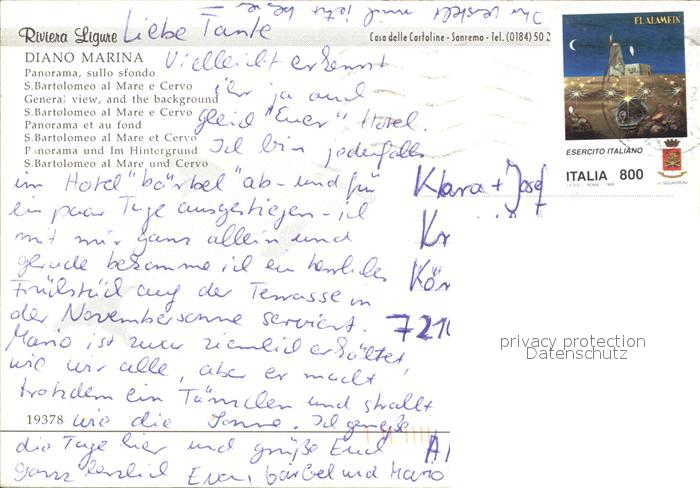 Riviera Ligure
Casa delle Cartoline - Sanremo - Tel. (0184) 50 2
DIANO MARINA
Panorama, sullo sfondo
S.Bartolomeo al Mare e Cervo
General view, and the background
S.Bartolomeo al Mare e Cervo
Panorama et au fond
S.Bartolomeo al Mare et Cervo
Panorama und Im Hintergrund
S.Bartolomeo al Mare und Cervo
Liebe Tante
Vielleicht erkennt
ihr ja auch
gleich "Euer" Hotel.
Ich bin jedenfalls
im Hotel "bärbel" ab- und für
ein paar Tage ausgestiegen - ich
mit mir ganz allein und
gerade bekomme ich ein herrliches
Frühstück auf der Terrasse in
der Novembersonne serviert.
Mario ist zwar ziemlich erkältet,
wie wir alle, aber er macht
trotzdem ein Tänzchen und strahlt
wie die Sonne. Ich genieße
die Tage hier und grüße Euch
ganz herzlich Eure bärbel und Mario
19378
Klara + Josef
Kr
Kön
7210
Al
EL ALAMEIN
ESERCITO ITALIANO
ITALIA 800
I.P.Z.S. - ROMA - 1992
privacy protection
Datenschutz